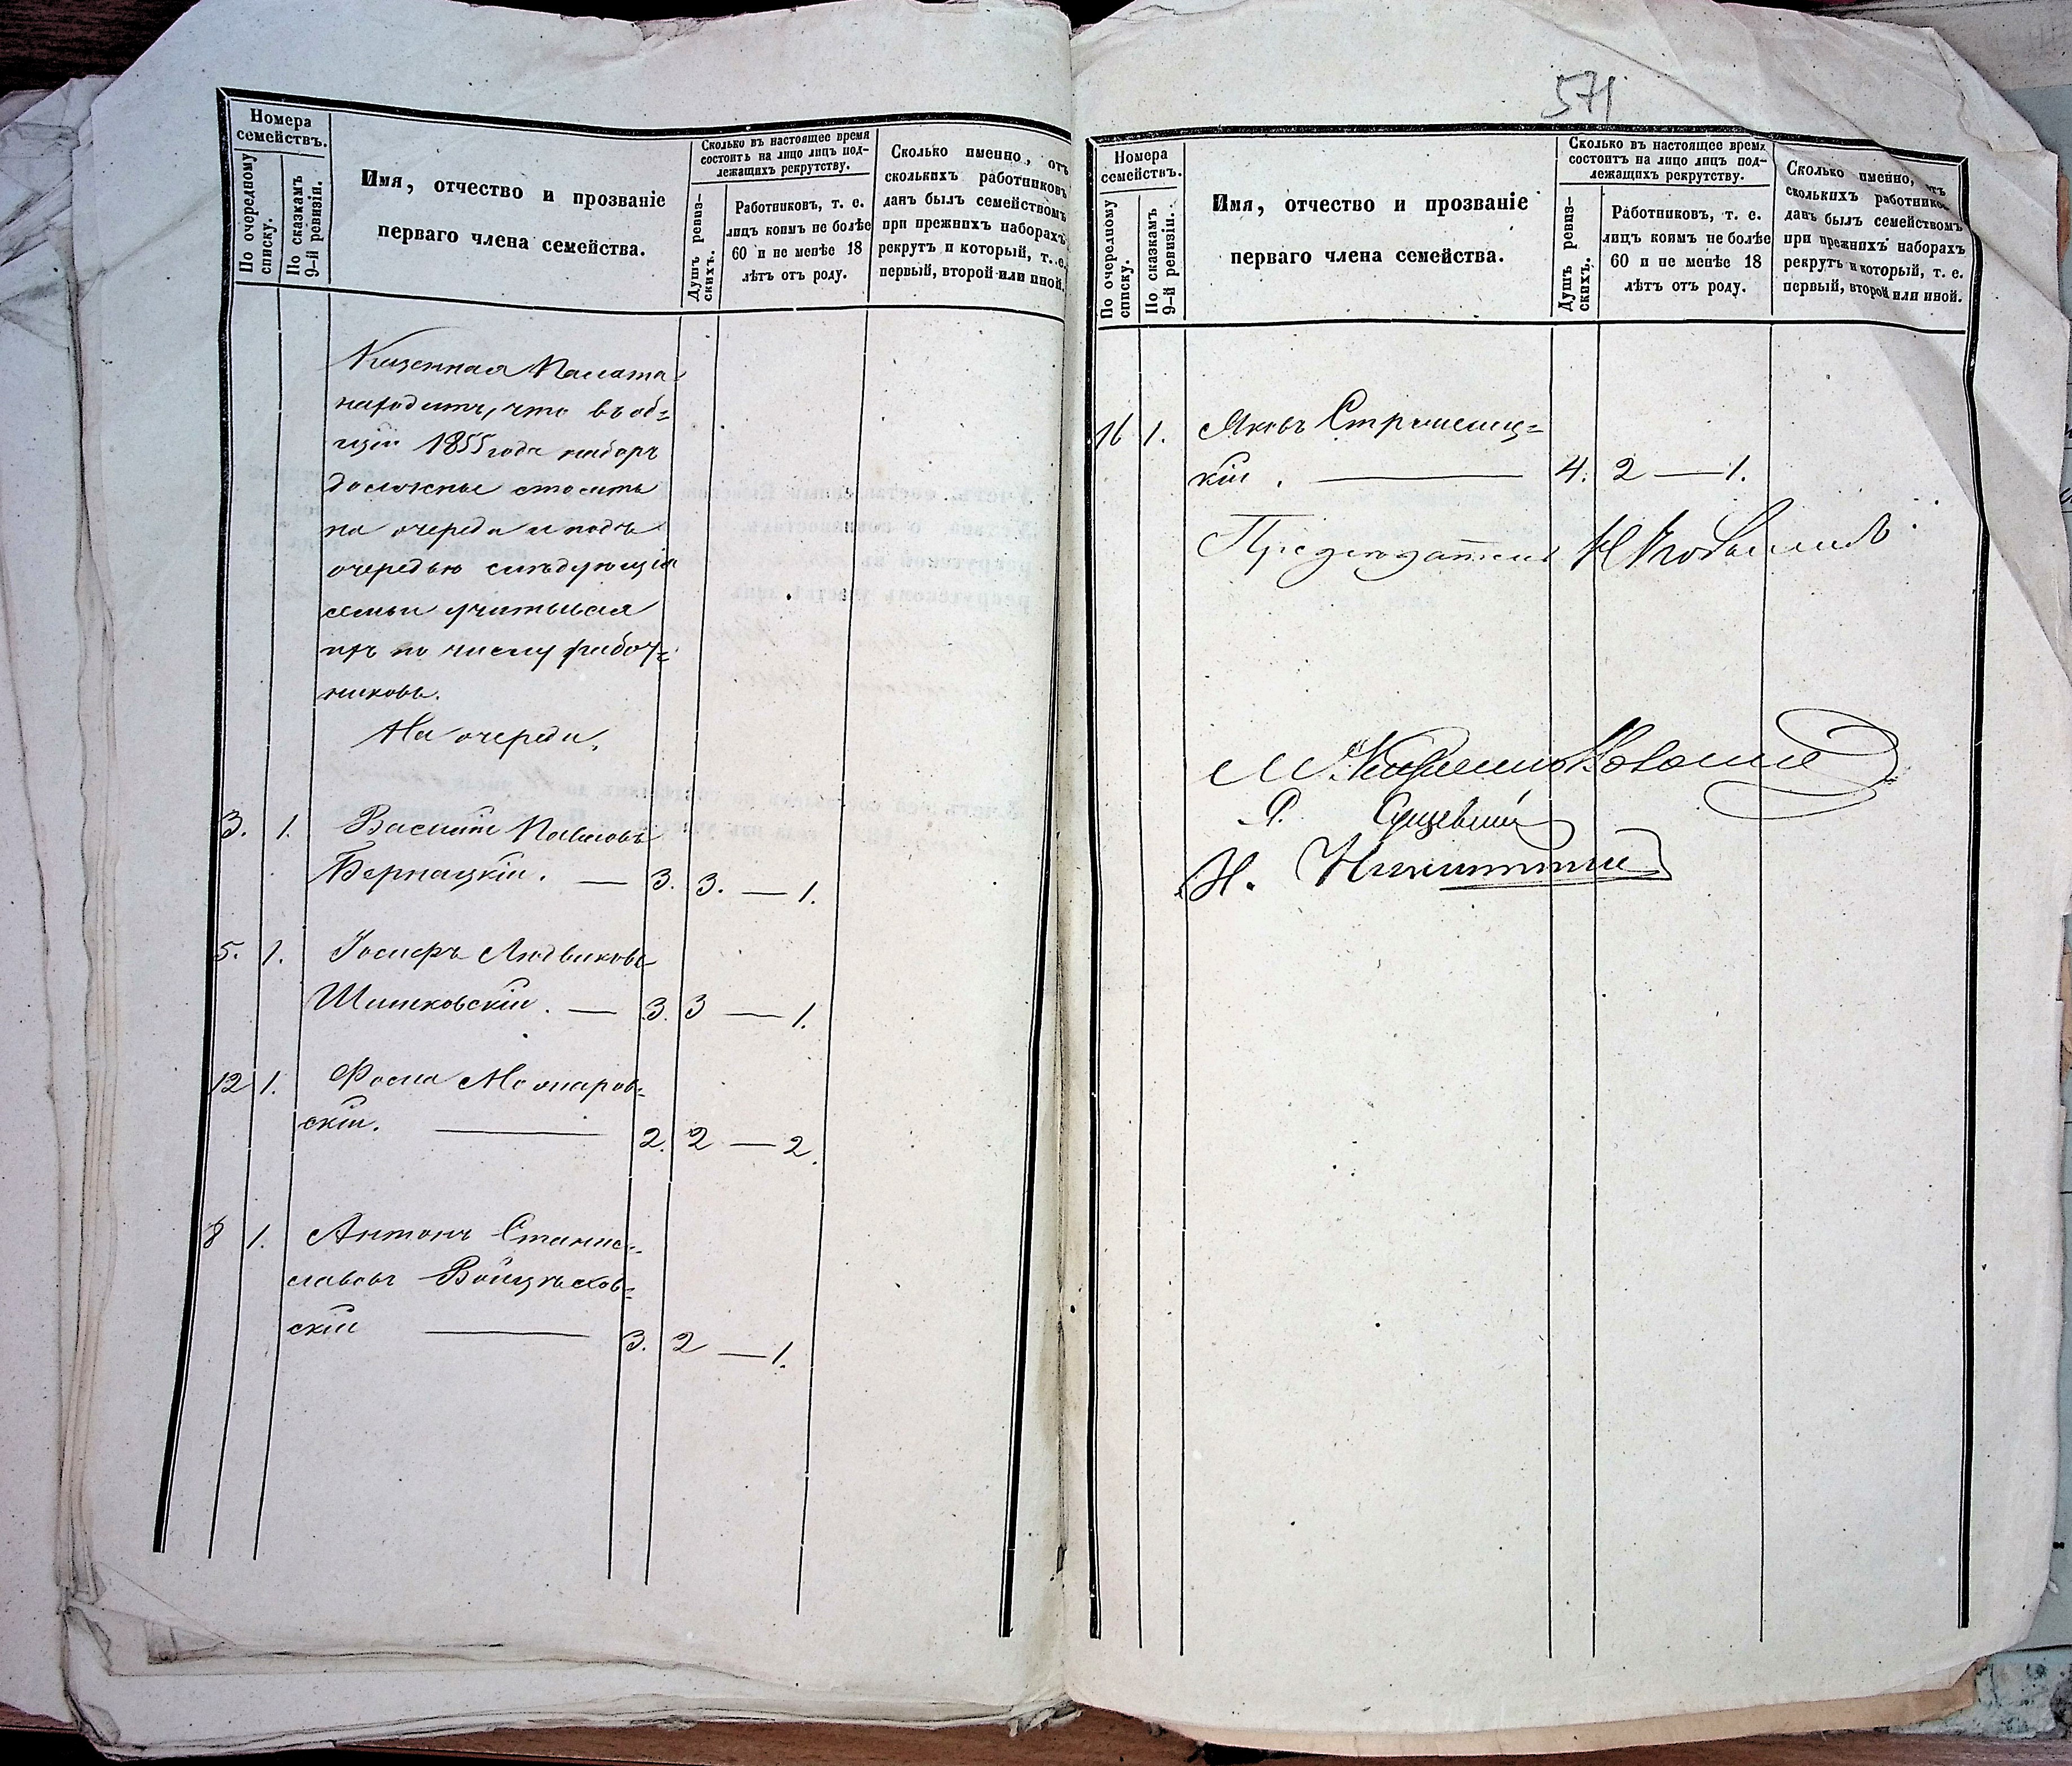 Номера
семействъ.
По очередному
списку.
По сказкамъ
9-й ревизіи.
Имя, отчество и прозваніе
перваго члена семейства.
Сколько въ настоящее время
состоитъ на лицо лицъ под-
лежащихъ рекрутству.
Душъ ревиз-
скихъ.
Работниковъ, т. е.
лицъ коимъ не болѣе
60 и не менѣе 18
лѣтъ отъ роду.
Сколько именно, отъ
сколькихъ работниковъ
данъ былъ семействомъ
при прежнихъ наборахъ
рекрутъ и который, т. е.
первый, второй или иной.
Казенная Палата
находитъ, что въ об-
щій 1855 года наборъ
должны стоять
на очереди и подъ
очередью слѣдующія
семьи учитывая
ихъ по числу работ-
никовъ.
На очереди.
3. 1. Василій Павловъ
Бернацкій. — 3. 3. — 1.
5. 1. Іосифъ Людвиковъ
Шишковскій. — 3. 3 — 1.
12 1. Фома
скій. — 2. 2 — 2.
8 1. Антонъ Станис-
лавовъ Войцѣхов-
скій — 3. 2 — 1.
571
Номера
семействъ.
По очередному
списку.
По сказкамъ
9-й ревизіи.
Имя, отчество и прозваніе
перваго члена семейства.
Сколько въ настоящее время
состоитъ на лицо лицъ под-
лежащихъ рекрутству.
Душъ ревиз-
скихъ.
Работниковъ, т. е.
лицъ коимъ не болѣе
60 и не менѣе 18
лѣтъ отъ роду.
Сколько именно, отъ
сколькихъ работниковъ
данъ былъ семействомъ
при прежнихъ наборахъ
рекрутъ и который, т. е.
первый, второй или иной.
16 1. Яковъ
кій. — 4. 2 — 1.
Председатель
М.
Р.
Н. Никитинъ